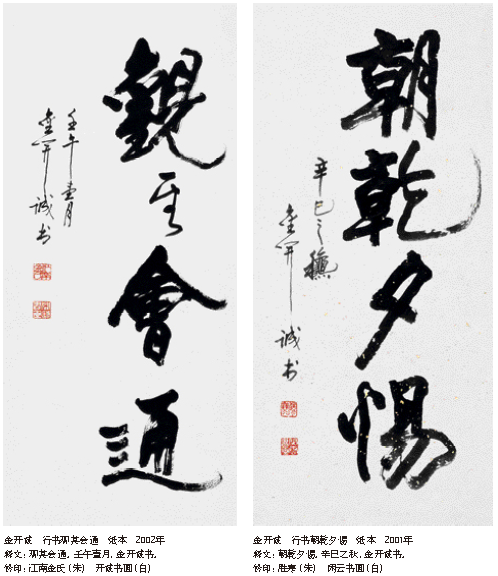 觀其會通
壬午壹月
金开诚书
金开诚 行书观其会通 纸本 2002年
释文：观其会通。壬午壹月，金开诚书。
钤印：江南金氏（朱） 开诚书画（白）
朝乾夕惕
辛巳之穐
金开诚书
金开诚 行书朝乾夕惕 纸本 2001年
释文：朝乾夕惕。辛巳之秋，金开诚书。
钤印：胜寒（朱） 闲云书画（白）